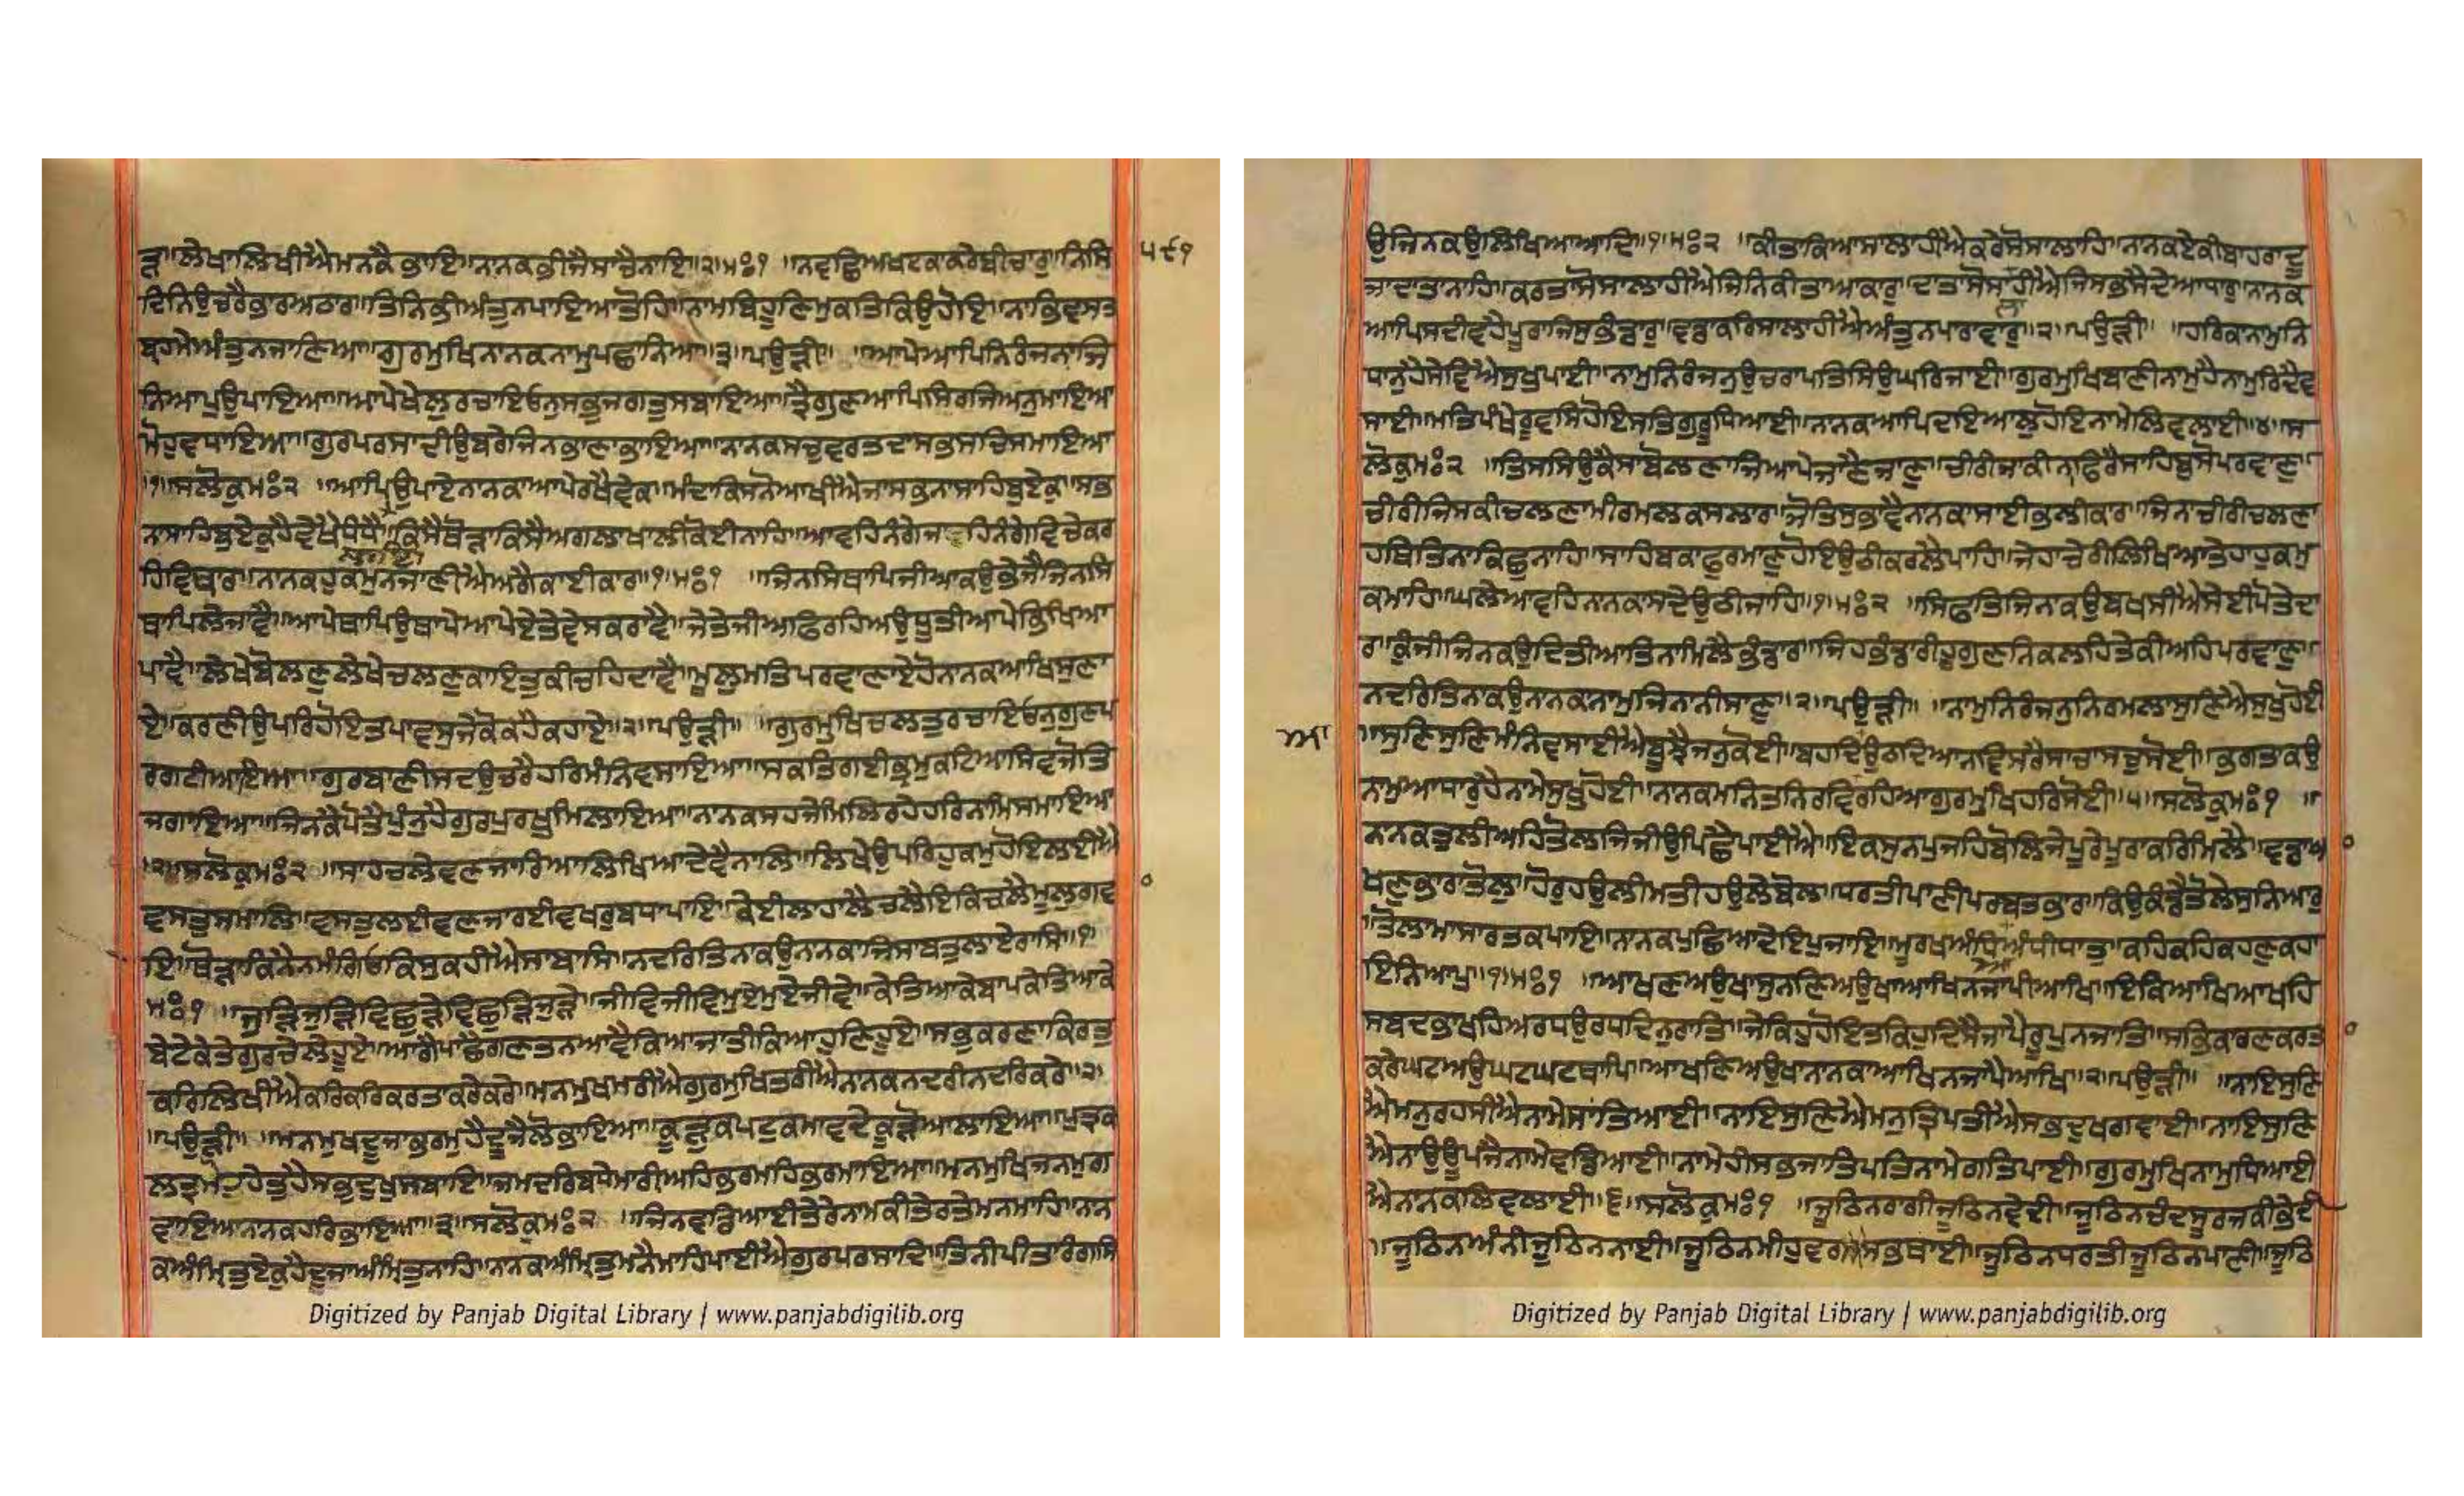 ੜਾ॥ਲੇਖਾਲਿਖੀਐਮਨਕੈਭਾਇ॥ਨਾਨਕਭੀਜੈਸਾਚੈਨਾਇ॥੨॥ਮਃ੧ ॥ਨਵਛਿਅਖਟਕਾਕਰੇਬੀਚਾਰੁ॥ਨਿਸਿ
੫੯੧
ਦਿਨਿਉਚਰੈਭਾਰਅਠਾਰ॥ਤਿਨਿਭੀਅੰਤੁਨਪਾਇਆਤੋਹਿ॥ਨਾਮਬਿਹੂਣਿਮੁਕਤਿਕਿਉਹੋਇ॥ਨਾਭਿਵਸਤ
ਬ੍ਰਹਮੈਅੰਤੁਨਜਾਣਿਆ॥ਗੁਰਮੁਖਿਨਾਨਕਨਾਮੁਪਛਾਨਿਆ॥੩॥ਪਉੜੀ॥ ॥ਆਪੇਆਪਿਨਿਰੰਜਨਾਜਿ
ਨਿਆਪੁਉਪਾਇਆ॥ਆਪੇਖੇਲੁਰਚਾਇਓਨੁਸਭੁਜਗਤੁਸਬਾਇਆ॥ਤ੍ਰੈਗੁਣਆਪਿਸਿਰਜਿਅਨੁਮਾਇਆ
ਮੋਹੁਵਧਾਇਆ॥ਗੁਰਪਰਸਾਦੀਉਬਰੇਜਿਨਭਾਣਾਭਾਇਆ॥ਨਾਨਕਸਚੁਵਰਤਦਾਸਭਸਚਿਸਮਾਇਆ
॥੧॥ਸਲੋਕੁਮਃ੨ ॥ਆਪਿਉਪਾਏਨਾਨਕਾਆਪੇਰਖੈਵੇਕ॥ਮੰਦਾਕਿਸਨੋਆਖੀਐਜਾਸਭਨਾਸਾਹਿਬੁਏਕੁ॥ਸਭ
ਨਾਸਾਹਿਬੁਏਕੁਹੈਵੇਖੈਧੰਧੈ॥ਕਿਸੈਥੋੜਾਕਿਸੈਅਗਲਾਖਾਲੀਕੋਈਨਾਹਿ॥ਆਵਹਿਨੰਗੇਜਾਹਿਨੰਗੇਵਿਚੇਕਰ
ਲਾਇ
ਹਿਵਿਥਾਰ॥ਨਾਨਕਹੁਕਮੁਨਜਾਣੀਐਅਗੈਕਾਈਕਾਰ॥੧॥ਮਃ੧ ॥ਜਿਨਸਿਥਾਪਿਜੀਆਕਉਭੇਜੈਜਿਨਸਿ
ਥਾਪਿਲੈਜਾਵੈ॥ਆਪੇਥਾਪਿਉਥਾਪੇਆਪੇਏਤੇਵੇਸਕਰਾਵੈ॥ਜੇਤੇਜੀਅਫਿਰਹਿਅਉਧੂਤੀਆਪੇਭਿਖਿਆ
ਪਾਵੈ॥ਲੇਖੇਬੋਲਣੁਲੇਖੇਚਲਣੁਕਾਇਤੁਕੀਚਹਿਦਾਵੈ॥ਮੂਲੁਮਤਿਪਰਵਾਣਾਏਹੋਨਾਨਕਆਖਿਸੁਣਾ
ਏ॥ਕਰਣੀਉਪਰਿਹੋਇਤਪਾਵਸੁਜੇਕੋਕਹੈਕਹਾਏ॥੨॥ਪਉੜੀ॥ ॥ਗੁਰਮੁਖਿਚਲਤੁਰਚਾਇਓਨੁਗੁਣਪ
ਰਗਟੀਆਇਆ॥ਗੁਰਬਾਣੀਸਦਉਚਰੈਹਰਿਮੰਨਿਵਸਾਇਆ॥ਸਕਤਿਗਈਭ੍ਰਮੁਕਟਿਆਸਿਵਜੋਤਿ
ਜਗਾਇਆ॥ਜਿਨਕੈਪੋਤੈਪੁੰਨੁਹੈਗੁਰਪੁਰਖੁਮਿਲਾਇਆ॥ਨਾਨਕਸਹਜੇਮਿਲਿਰਹੇਹਰਿਨਾਮਿਸਮਾਇਆ
॥੨॥ਸਲੋਕੁਮਃ੨ ॥ਸਾਹਚਲੇਵਣਜਾਰਿਆਲਿਖਿਆਦੇਵੈਨਾਲਿ॥ਲਿਖੇਉਪਰਿਹੁਕਮੁਹੋਇਲਈਐ
ਵਸਤੁਸਮਾਲਿ॥ਵਸਤੁਲਈਵਣਜਾਰਈਵਖਰੁਬਧਾਪਾਇ॥ਕੇਈਲਾਹਾਲੈਚਲੇਇਕਿਚਲੇਮੂਲੁਗਵ
ਇ॥ਥੋੜਾਕਿਨੈਨਮੰਗਿਓਕਿਸੁਕਹੀਐਸਾਬਾਸਿ॥ਨਦਰਿਤਿਨਾਕਉਨਾਨਕਾਜਿਸਾਬਤੁਲਾਏਰਾਸਿ॥੧॥
ਮਃ੧ ॥ਜੁੜਿਜੁੜਿਵਿਛੁੜੇਵਿਛੁੜਿਜੁੜੇ॥ਜੀਵਿਜੀਵਿਮੁਏਮੁਏਜੀਵੇ॥ਕੇਤਿਆਕੇਬਾਪਕੇਤਿਆਕੇ
ਬੇਟੇਕੇਤੇਗੁਰਚੇਲੇਹੂਏ॥ਆਗੈਪਾਛੈਗਣਤਨਆਵੈਕਿਆਜਾਤੀਕਿਆਹੁਣਿਹੂਏ॥ਸਭੁਕਰਣਾਕਿਰਤੁ
ਕਰਿਲਿਖੀਐਕਰਿਕਰਿਕਰਤਾਕਰੇਕਰੇ॥ਮਨਮੁਖਮਰੀਐਗੁਰਮੁਖਿਤਰੀਐਨਾਨਕਨਦਰੀਨਦਰਿਕਰੇ॥੨॥
॥ਪਉੜੀ॥ ॥ਮਨਮੁਖਦੂਜਾਭਰਮੁਹੈਦੂਜੈਲੋਭਾਇਆ॥ਕੂੜੁਕਪਟੁਕਮਾਵਦੇਕੂੜੋਆਲਾਇਆ॥ਪੁਤ੍ਰਕ
ਲਤ੍ਰਮੋਹੁਹੇਤੁਹੈਸਭੁਦੁਖੁਸਬਾਇ॥ਜਮਦਰਿਬਧੇਮਾਰੀਅਹਿਭਰਮਹਿਭਰਮਾਇਆ॥ਮਨਮੁਖਿਜਨਮੁਗ
ਵਾਇਆਨਾਨਕਹਰਿਭਾਇਆ॥੩॥ਸਲੋਕੁਮਃ੨ ॥ਜਿਨਵਡਿਆਈਤੇਰੇਨਾਮਕੀਤੇਰਤੇਮਨਮਾਹਿ॥ਨਾਨ
ਕਅੰਮ੍ਰਿਤੁਏਕੁਹੈਦੂਜਾਅੰਮ੍ਰਿਤੁਨਾਹਿ॥ਨਾਨਕਅੰਮ੍ਰਿਤੁਮਨੈਮਾਹਿਪਾਈਐਗੁਰਪਰਸਾਦਿ॥ਤਿਨੀਪੀਤਾਰੰਗਸਿ
Digitized by Panjab Digital Library | www.panjabdigilib.org
ਉਜਿਨਕਉਲਿਖਿਆਆਦਿ॥੧॥ਮਃ੨ ॥ਕੀਤਾਕਿਆਸਾਲਾਹੀਐਕਰੇਸੋਸਾਲਾਹਿ॥ਨਾਨਕਏਕੀਬਾਹਰਾਦੂ
ਜਾਦਾਤਾਨਾਹਿ॥ਕਰਤਾਸੋਸਾਲਾਹੀਐਜਿਨਿਕੀਤਾਆਕਾਰੁ॥ਦਾਤਾਸੋਸਾਹੀਐਜਿਸਭਸੈਦੇਆਧਾਰੁ॥ਨਾਨਕ
ਲਾ
ਆਪਿਸਦੀਵਹੈਪੂਰਾਜਿਸੁਭੰਡਾਰੁ॥ਵਡਾਕਰਿਸਾਲਾਹੀਐਅੰਤੁਨਪਾਰਾਵਾਰੁ॥੨॥ਪਉੜੀ॥ ॥ਹਰਿਕਾਨਾਮੁਨਿ
ਧਾਨੁਹੈਸੇਵਿਐਸੁਖੁਪਾਈ॥ਨਾਮੁਨਿਰੰਜਨੁਉਚਰਾਪਤਿਸਿਉਘਰਿਜਾਈ॥ਗੁਰਮੁਖਿਬਾਣੀਨਾਮੁਹੈਨਾਮੁਰਿਦੈਵ
ਸਾਈ॥ਮਤਿਪੰਖੇਰੂਵਸਿਹੋਇਸਤਿਗੁਰੂਧਿਆਈ॥ਨਾਨਕਆਪਿਦਇਆਲੁਹੋਇਨਾਮੇਲਿਵਲਾਈ॥੪॥ਸ
ਲੋਕੁਮਃ੨ ॥ਤਿਸਸਿਉਕੈਸਾਬੋਲਣਾਜਿਆਪੇਜਾਣੈਜਾਣੁ॥ਚੀਰੀਜਾਕੀਨਾਫਿਰੈਸਾਹਿਬੁਸੋਪਰਵਾਣੁ॥
ਚੀਰੀਜਿਸਕੀਚਲਣਾਮੀਰਮਲਕਸਲਾਰ॥ਜੋਤਿਸੁਭਾਵੈਨਾਨਕਾਸਾਈਭਲੀਕਾਰ॥ਜਿਨਾਚੀਰੀਚਲਣਾ
ਹਥਿਤਿਨਾਕਿਛੁਨਾਹਿ॥ਸਾਹਿਬਕਾਫੁਰਮਾਣੁਹੋਇਉਠੀਕਰਲੈਪਾਹਿ॥ਜੇਹਾਚੇਰੀਲਿਖਿਆਤੇਹਾਹੁਕਮੁ
ਕਮਾਹਿ॥ਘਲੇਆਵਹਿਨਾਨਕਾਸਦੇਉਠੀਜਾਹਿ॥੧॥ਮਃ੨ ॥ਸਿਫਤਿਜਿਨਾਕਉਬਖਸੀਐਸੇਈਪੋਤੇਦਾ
ਰ॥ਕੁੰਜੀਜਿਨਕਉਦਿਤੀਆਤਿਨਾਮਿਲੈਭੰਡਾਰ॥ਜਿਹਭੰਡਾਰੀਹੂਗੁਣਨਿਕਲਹਿਤੇਕੀਅਹਿਪਰਵਾਣੁ॥
ਨਦਰਿਤਿਨਾਕਉਨਾਨਕਾਨਾਮੁਜਿਨਾਨੀਸਾਣੁ॥੨॥ਪਉੜੀ॥ ॥ਨਾਮੁਨਿਰੰਜਨੁਨਿਰਮਲਾਸੁਣਿਐਸੁਖੁਹੋਈ
॥ਸੁਣਿਸੁਣਿਮੰਨਿਵਸਾਈਐਬੂਝੈਜਨੁਕੋਈ॥ਬਹਦਿਉਠਦਿਆਨਵਿਸਰੈਸਾਚਾਸਚੁਸੋਈ॥ਭਗਤਾਕਉ
ਨਾਮੁਆਧਾਰੁਹੈਨਾਮੇਸੁਖੁਹੋਈ॥ਨਾਨਕਮਨਿਤਨਿਰਵਿਰਹਿਆਗੁਰਮੁਖਿਹਰਿਸੋਈ॥੫॥ਸਲੋਕੁਮਃ੧ ॥
ਨਾਨਕਤੁਲੀਅਹਿਤੋਲਜਿਜੀਉਪਿਛੈਪਾਈਐ॥ਇਕਸੁਨਪੁਜਹਿਬੋਲਿਜੇਪੂਰੇਪੂਰਾਕਰਿਮਿਲੈ॥ਵਡਾਆ
ਖਣੁਭਾਰਾਤੋਲੁ॥ਹੋਰੁਹਉਲੀਮਤੀਹਉਲੇਬੋਲ॥ਧਰਤੀਪਾਣੀਪਰਬਤਭਾਰੁ॥ਕਿਉਕੰਡੈਤੋਲੇਸੁਨਿਆਰੁ
॥ਤੋਲਾਮਾਸਾਰਤਕਪਾਇ॥ਨਾਨਕਪੁਛਿਆਦੇਇਪੁਜਾਇ॥ਮੂਰਖਅੰਧਿਆਅੰਧੀਧਾਤੁ॥ਕਹਿਕਹਿਕਹਣੁਕਹਾ
ਇਨਿਆਪੁ॥੧॥ਮਃ੧ ॥ਆਖਣਅਉਖਾਸੁਨਣਿਅਉਖਾਆਖਿਨਜਾਪੀਆਖਿ॥ਇਕਿਆਖਿਆਖਹਿ
ਸਬਦਭਾਖਹਿਅਰਧਉਰਧਦਿਨੁਰਾਤਿ॥ਜੇਕਿਹੁਹੋਇਤਕਿਹੁਦਿਸੈਜਾਪੈਰੂਪੁਨਜਾਤਿ॥ਸਭਿਕਾਰਣਕਰਤਾ
ਕਰੇਘਟਅਉਘਟਘਟਥਾਪਿ॥ਆਖਣਿਅਉਖਾਨਾਨਕਾਆਖਿਨਜਾਪੈਆਖਿ॥੨॥ਪਉੜੀ॥ ॥ਨਾਇਸੁਣਿ
ਐਮਨੁਰਹਸੀਐਨਾਮੇਸਾਂਤਿਆਈ॥ਨਾਇਸੁਣਿਐਮਨੁਤ੍ਰਿਪਤੀਐਸਭਦੁਖਗਵਾਈ॥ਨਾਇਸੁਣਿ
ਐਨਾਉਊਪਜੈਨਾਮੇਵਡਿਆਈ॥ਨਾਮੇਹੀਸਭਜਾਤਿਪਤਿਨਾਮੇਗਤਿਪਾਈ॥ਗੁਰਮੁਖਿਨਾਮੁਧਿਆਈ
ਐਨਾਨਕਲਿਵਲਾਈ॥੬॥ਸਲੋਕੁਮਃ੧ ॥ਜੂਠਿਨਰਾਗੀਜੂਠਿਨਵੇਦੀ॥ਜੂਠਿਨਚੰਦਸੂਰਜਕੀਭੇਦੀ
॥ਜੂਠਿਨਅੰਨੀਜੂਠਿਨਨਾਈ॥ਜੂਠਿਨਮੀਹੁਵਰ੍ਹਿਐਸਭਥਾਈ॥ਜੂਠਿਨਧਰਤੀਜੂਠਿਨਪਾਣੀ॥ਜੂਠਿ
Digitized by Panjab Digital Library | www.panjabdigilib.org